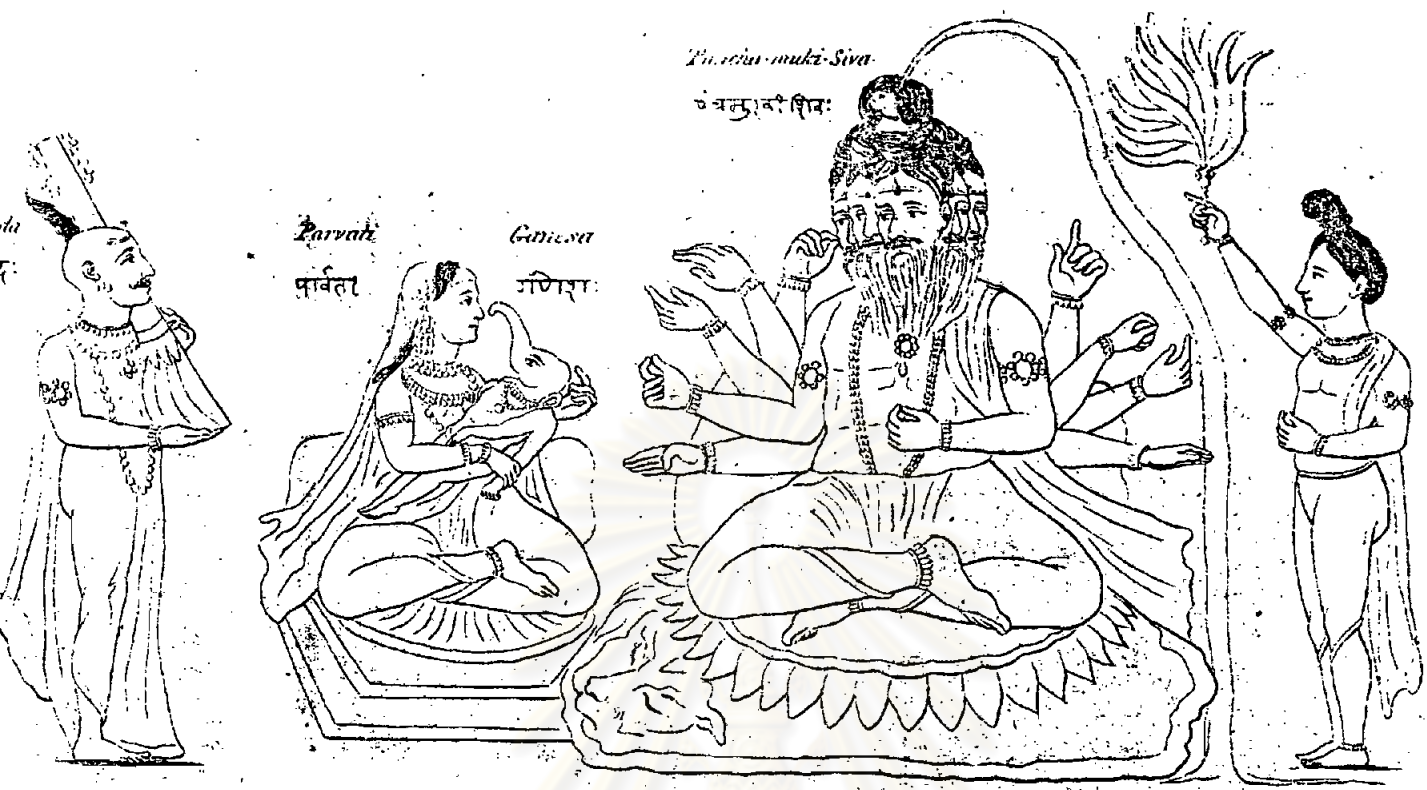 Pancha-muki-Siva
पंचमुखी शिवः
Parvati
पार्वती
Ganesa
गणेशः